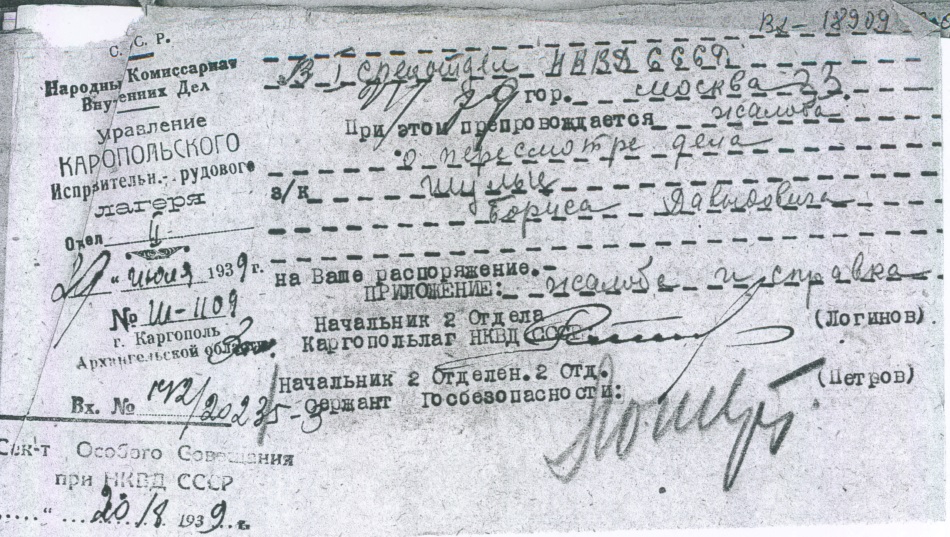 ВД-18909
С. С. Р.
Народны Комиссариат
Внутенних Дел
управление
КАРОПОЛЬСКОГО
Исправительн.- рудового
лагеря
Отдел II
"июля 1939 г.
№ Ш-1109
г. Каргополь
Архангельской области
Вх. №
20235-3
В I спецотдел НКВД СССР
гор. Москва
При этом препровождается жалоба
о пересмотре дела
з/к Шульц
Бориса Давыдовича
на Ваше распоряжение.
ПРИЛОЖЕНИЕ: жалоба и справка
Начальник 2 Отдела
Каргопольлаг НКВД СССР
(Логинов)
Начальник 2 Отделен. 2 Отд.
Сержант Госбезопасности:
(Петров)
Сек-т Особого Совещания
при НКВД СССР
20/8 1939 г.